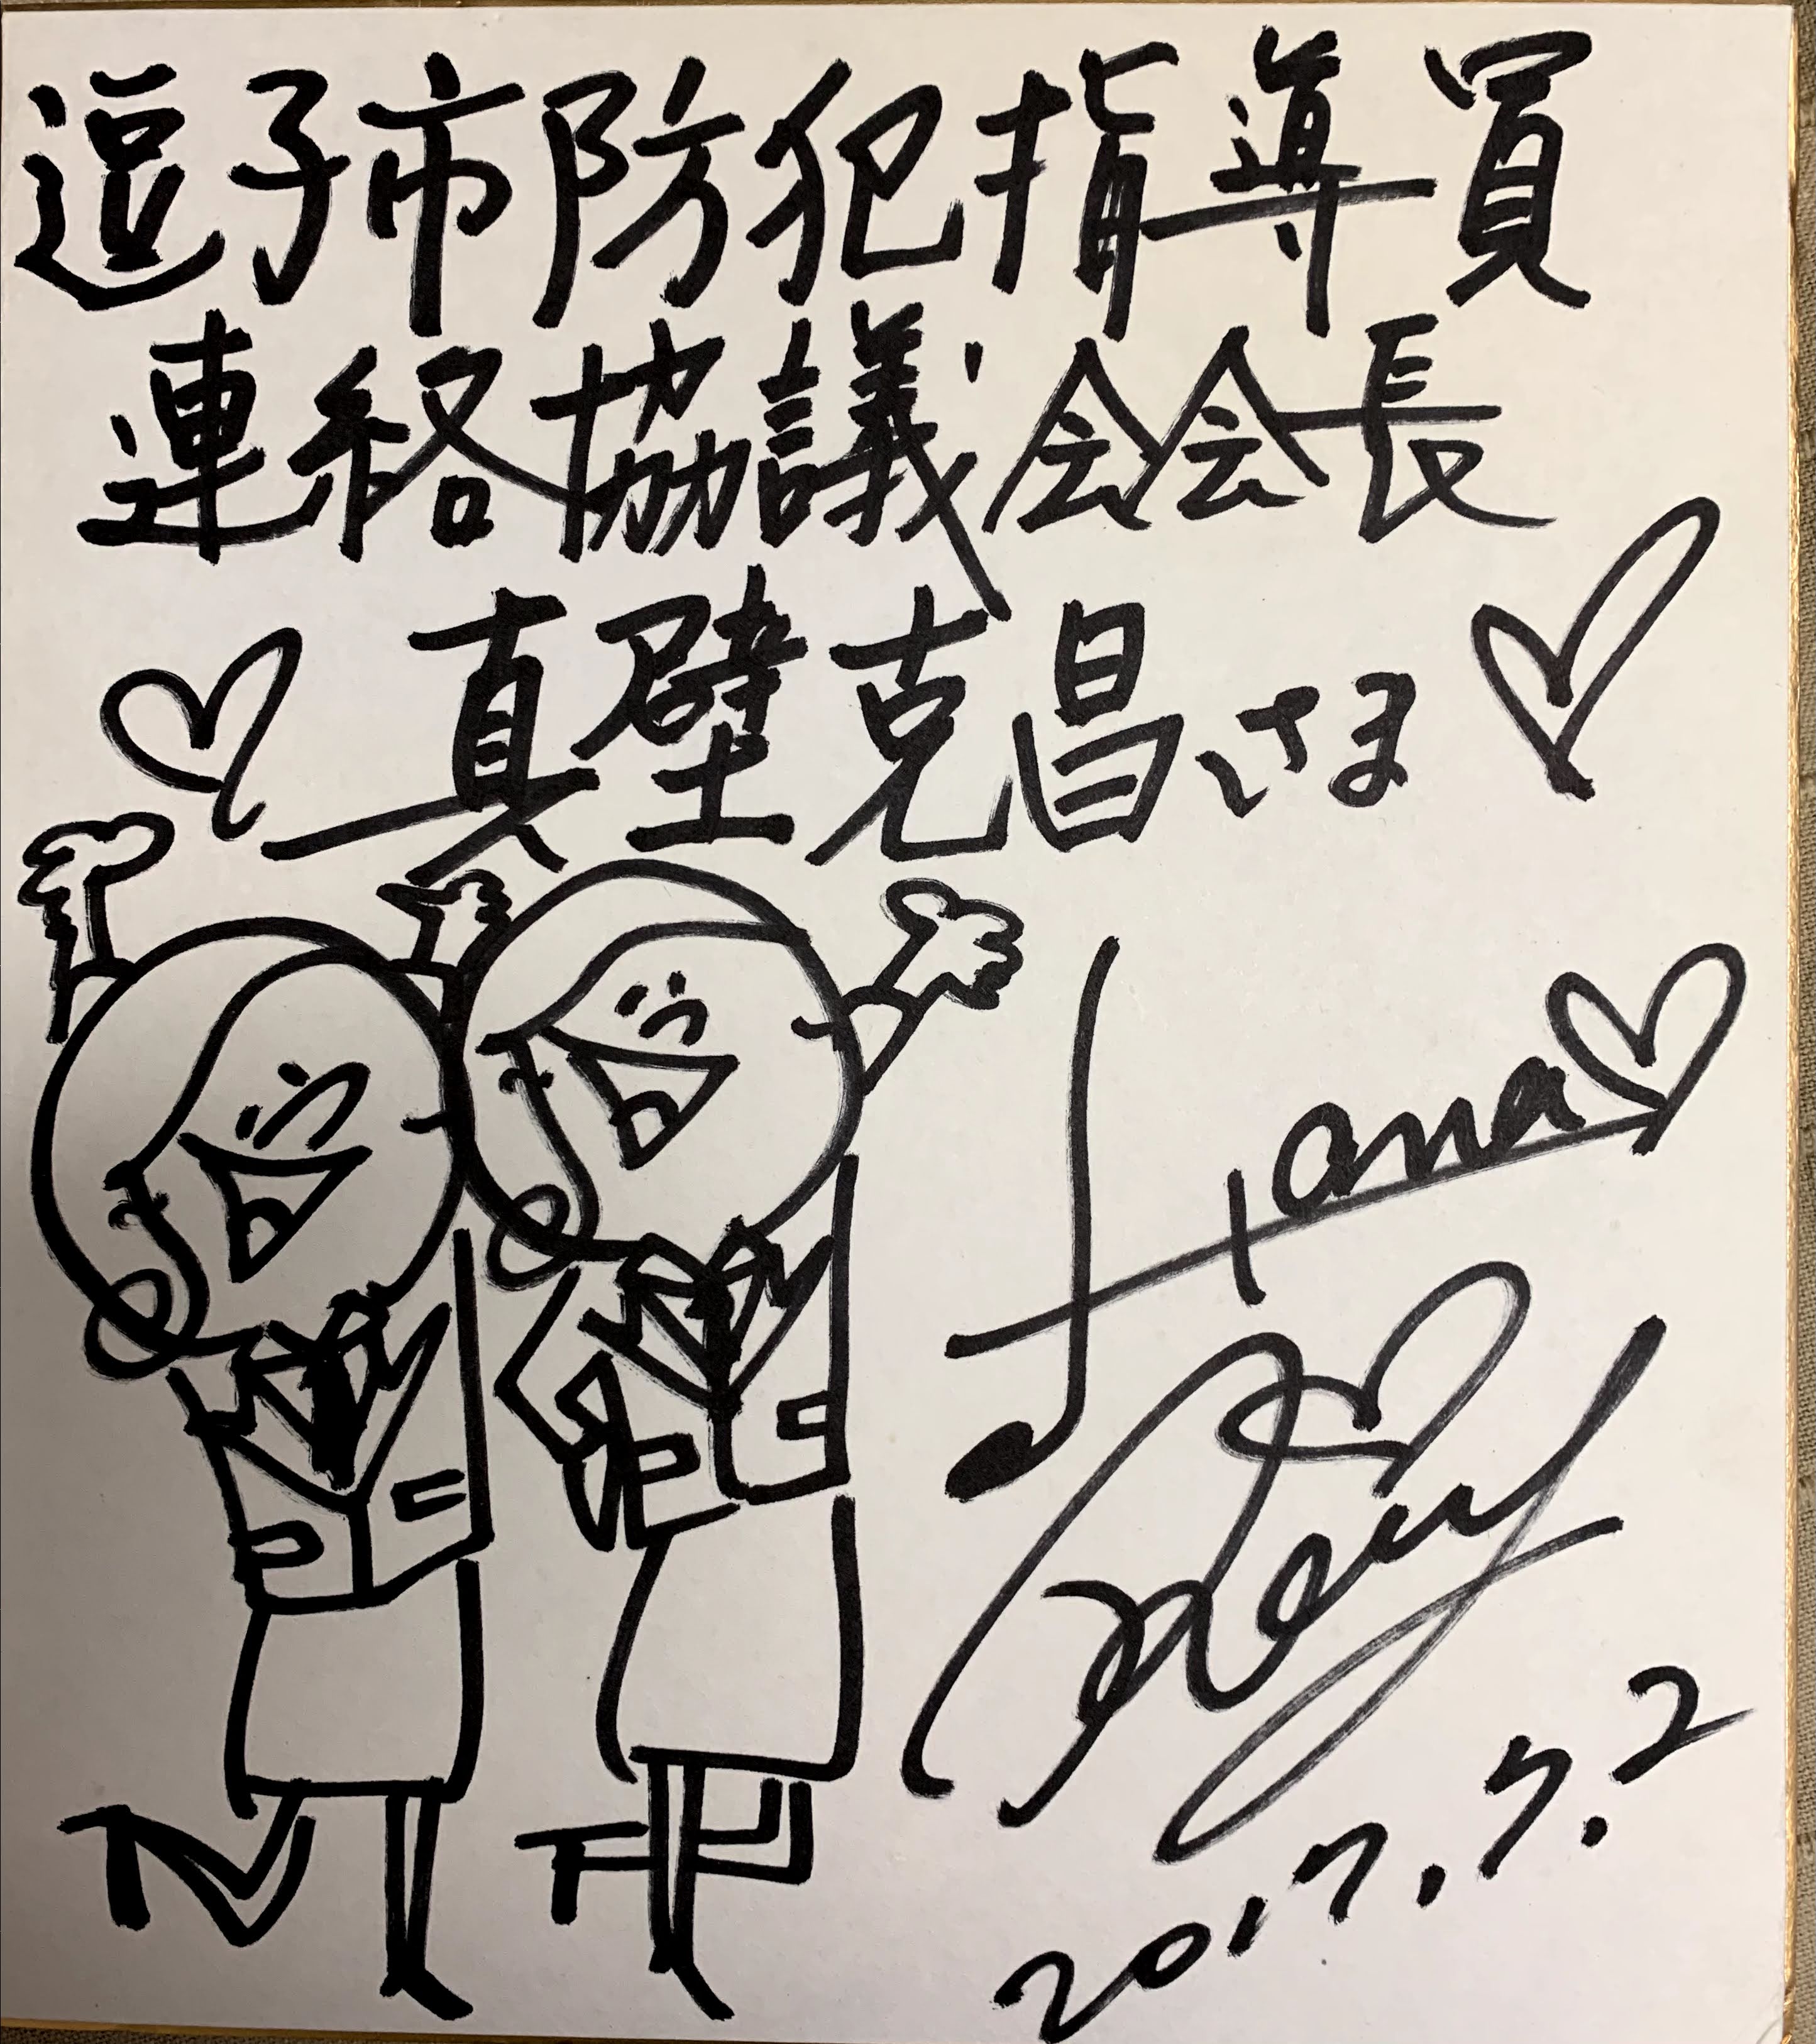 逗子市防犯指導員
連絡協議会会長
真壁克昌さま
Kana
2017.7.2